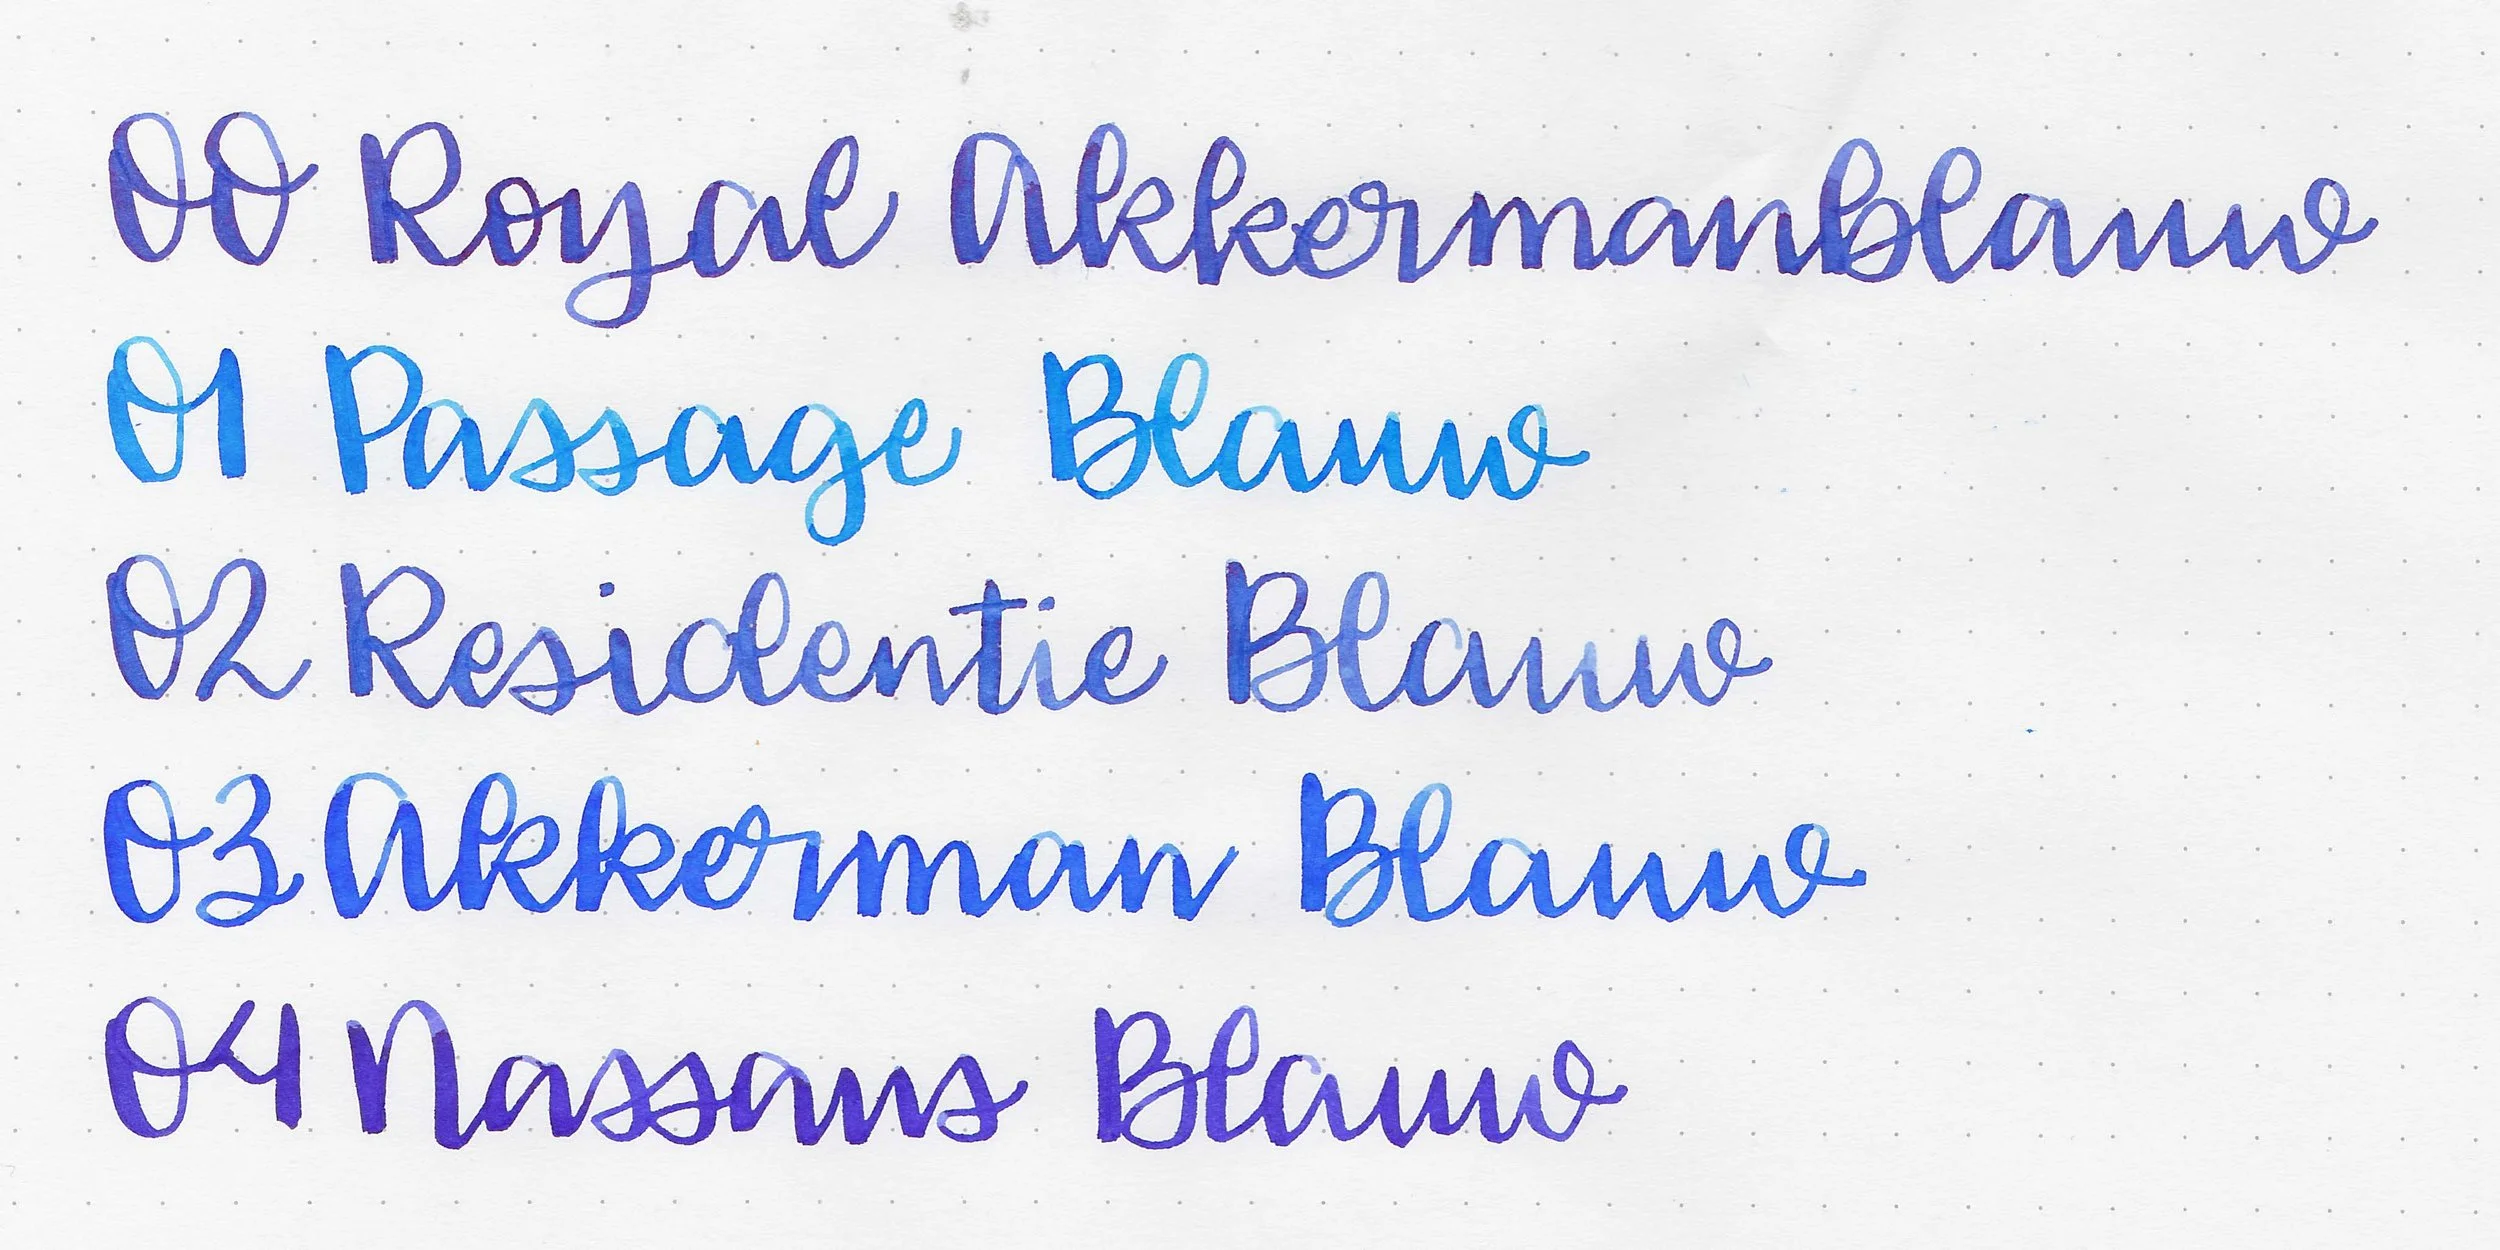 00 Royal Akkermanblauw
01 Passage Blauw
02 Residentie Blauw
03 Akkerman Blauw
04 Nassaus Blauw